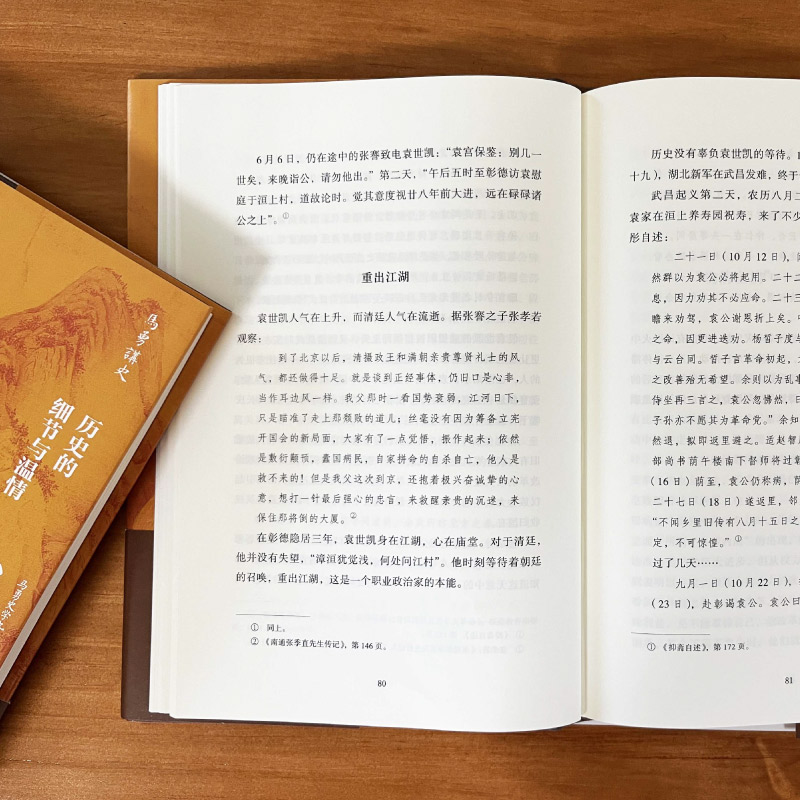 馬勇講史
历史的
细节与温情
6月6日,仍在途中的张謇致电袁世凯:“袁宫保鉴:别几一
世矣,来晚诣公,请勿他出。”第二天,“午后五时至彰德访袁慰
庭于洹上村,道故论时。觉其意度视廿八年前大进,远在碌碌诸
公之上”。①
重出江湖
袁世凯人气在上升,而清廷人气在流逝。据张謇之子张孝若
观察:
到了北京以后,清摄政王和满朝亲贵尊贤礼士的风
气,都还做得十足。就是谈到正经事体,仍旧口是心非,
当作耳边风一样。我父那时一看国势衰弱,江河日下,
只是瞄准了走上那颓败的道儿;丝毫没有因为筹备立宪
开国会的新局面,大家有了一点觉悟,振作起来;依然
是敷衍颟顸,蠹国病民,自家拼命的自杀自亡,他人是
救不来的!但是我父这次到京,还抱着极兴奋诚挚的心
意,想打一针最后强心的忠言,来救醒亲贵的沉迷,来
保住那将倒的大厦。②
在彰德隐居三年,袁世凯身在江湖,心在庙堂。对于清廷,
他并没有失望,“漳洹犹觉浅,何处问江村”。他时刻等待着朝廷
的召唤,重出江湖,这是一个职业政治家的本能。
① 同上。
② 《南通张季直先生传记》,第146页。
80
历史没有辜负袁世凯的等待。
十九),湖北新军在武昌发难,终于
武昌起义第二天,农历八月二
袁家在洹上养寿园祝寿,来了不少
彤自述:
二十一日(10月12日),
然群以为袁公必将起用。二十三
息,因力劝其不必应命。二十
瞻来劝驾,袁公谢恩折上矣。
之命,因更进迭劝。杨皙子度与
与云台同。皙子言革命初起,
之改善殆无希望。余则以为乱事
侍坐再三言之,袁公忽慨然,曰
子孙亦不愿其为革命党。”余知
然退,拟即返里避之。适赵智
邰尚书荫午楼南下督师将过彰
(16日)荫至,袁公仍称病,
二十七日(18日)遂返里,邻
“不闻乡里旧传有八月十五之
定,不可惊惶。”①
过了几天……
九月一日(10月22日),
(23日),赴彰谒袁公。袁公曰
① 《抑斋自述》,第172页。
81